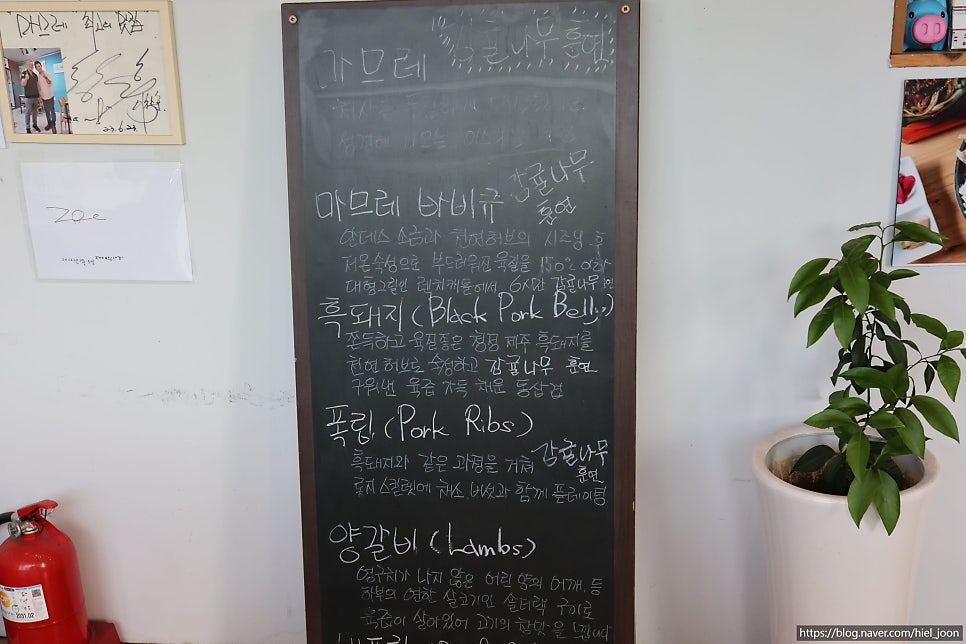 마므레 최고의 맛집
23.6.23.
zoe
감귤나무 훈연
마므레
마므레 바비큐 감귤나무 훈연
안데스 소금과 천연허브의 시즈닝 후
저온숙성으로 부드러워진 육질을 150℃ 이하
대형그릴인 렌치케틀에서 6시간 감귤나무 훈연
흑돼지 (Black Pork Belly)
쫀득하고 육질좋은 청정 제주 흑돼지를
천연 허브로 숙성하고 감귤나무 훈연
구워낸 육즙 가득 채운 통삼겹
폭립 (Pork Ribs)
흑돼지와 같은 과정을 거쳐 감귤나무 훈연
롯지 스킬렛에 채소 버섯과 함께 플레이팅
양갈비 (Lambs)
영구치가 나지 않은 어린 양의 어깨, 등
하부의 연한 살코기인 숄더랙 구이로
육즙이 살아있어 고기의 참맛을 느낍니다
https://blog.naver.com/hiel_joon